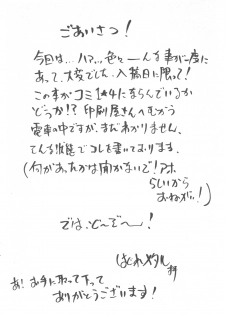 ごあいさつ!
今回は…ハァ…色々〜んな事が一度に
あって、大変でした。入稿日に限って!
この本がコミ1★4にならんでいるか
どうか!?印刷屋さんへむかう
電車の中ですが、まだわかりません。
てんな状態でコレを書いております。
(何があったかは聞かないで!アホ
らしいから
おねがい!)
では、ど〜ぞ〜!
はぐれメタル 拝
あ!お手に取って下って
ありがとうございます!